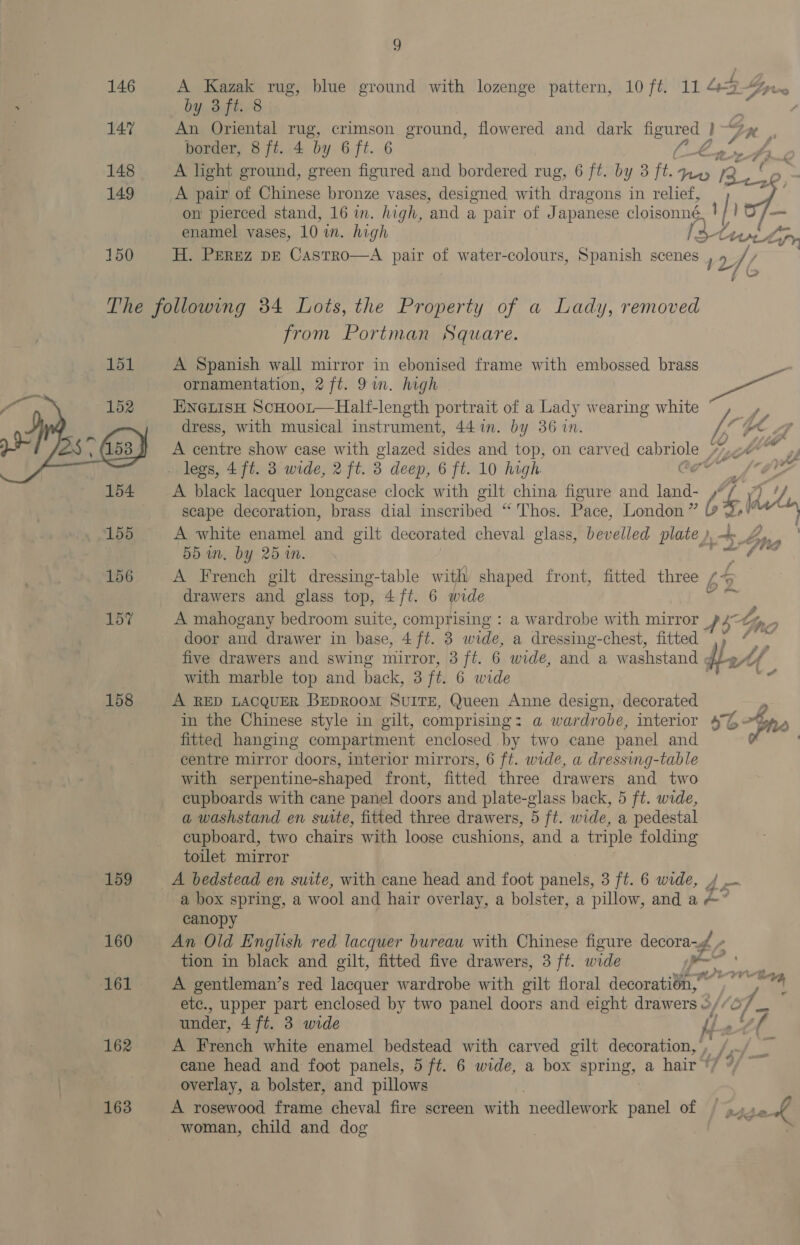 9
146 A Kazak rug, blue ground with lozenge pattern, 10 ft. 11
by 3 ft. 8
147 An Oriental rug, crimson ground, flowered and dark figured
border, 8 ft. 4 by 6 ft. 6
148 A light ground, green figured and bordered rug, 6 ft. by 3 ft.
149 A pair of Chinese bronze vases, designed with dragons in relief,
on pierced stand, 16 in. high, and a pair of Japanese cloisonné
enamel vases, 10 in. high
150 H. Perez de Castro—A pair of water-colours, Spanish scenes
The following 34 Lots, the Property of a Lady, removed
from Portman Square.
151 A Spanish wall mirror in ebonised frame with embossed brass
ornamentation, 2 ft. 9 in. high
152 English School—Half-length portrait of a Lady wearing white
dress, with musical instrument, 44 in. by 36 in.
153 A centre show case with glazed sides and top, on carved cabriole
legs, 4 ft. 3 wide, 2 ft. 3 deep, 6 ft. 10 high
154 A black lacquer longcase clock with gilt china figure and land-
scape decoration, brass dial inscribed “ Thos. Pace, London ”
155 A white enamel and gilt decorated cheval glass, bevelled plate
55 in. by 25 in.
156 A French gilt dressing-table with shaped front, fitted three
drawers and glass top, 4 ft. 6 wide
157 A mahogany bedroom suite, comprising : a wardrobe with mirror
door and drawer in base, 4 ft. 3 wide, a dressing-chest, fitted
five drawers and swing mirror, 3 ft. 6 wide, and a washstand
with marble top and back, 3 ft. 6 wide
158 A red lacquer Bedroom Suite, Queen Anne design, decorated
in the Chinese style in gilt, comprising: a wardrobe, interior
fitted hanging compartment enclosed by two cane panel and
centre mirror doors, interior mirrors, 6 ft. wide, a dressing-table
with serpentine-shaped front, fitted three drawers and two
cupboards with cane panel doors and plate-glass back, 5 ft. wide,
a washstand en suite, fitted three drawers, 5 ft. wide, a pedestal
cupboard, two chairs with loose cushions, and a triple folding
toilet mirror
159 A bedstead en suite, with cane head and foot panels, 3 ft. 6 wide,
a box spring, a wool and hair overlay, a bolster, a pillow, and a
canopy
160 An Old English red lacquer bureau with Chinese figure decora-
tion in black and gilt, fitted five drawers, 3 ft. wide
161 A gentleman’s red lacquer wardrobe with gilt floral decoration,
etc., upper part enclosed by two panel doors and eight drawers
under, 4 ft. 3 wide
162 A French white enamel bedstead with carved gilt decoration,
cane head and foot panels, 5 ft. 6 wide, a box spring, a hair
overlay, a bolster, and pillows
163 A rosewood frame cheval fire screen with needlework panel of
woman, child and dog